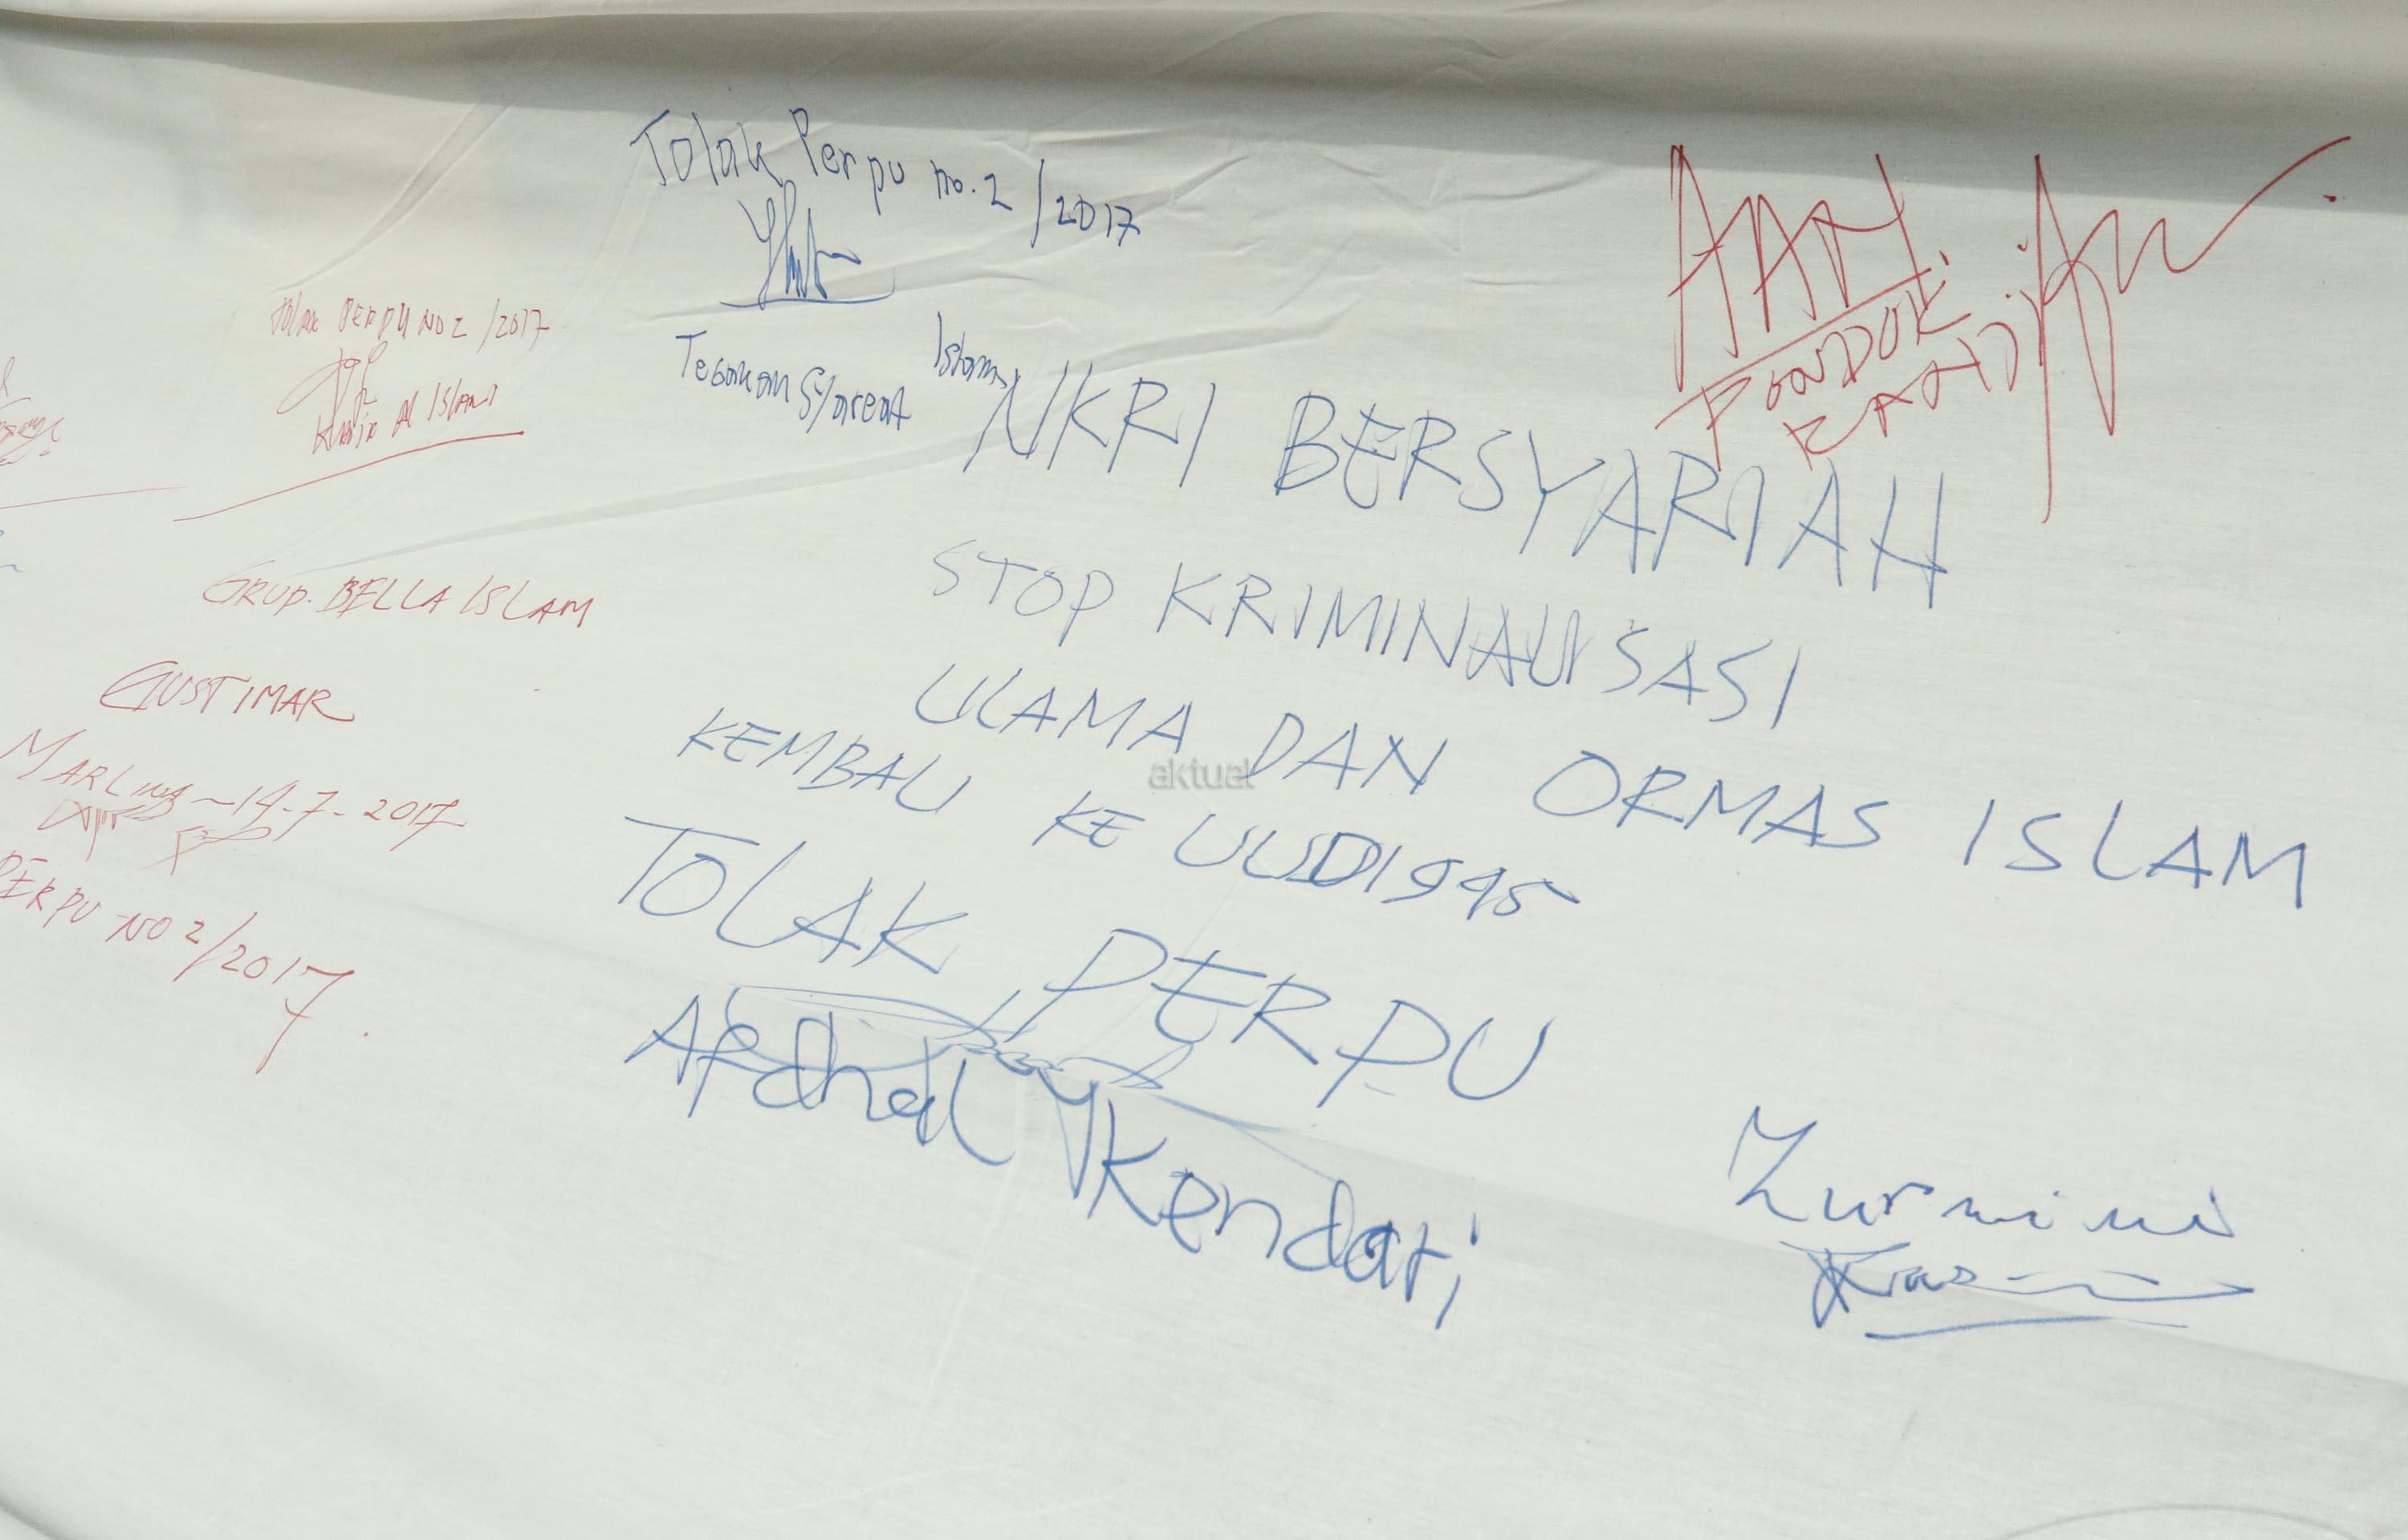 Tolak Perpu no. 2 / 2017
Tegakan Syareat Islam
AAN
PONDOK
RANDJI
Tolak PERPU NO 2 / 2017
Al ISLAM
NKRI BERSYARIAH
STOP KRIMINALISASI
ULAMA DAN ORMAS ISLAM
KEMBALI KE UUD 1945
TOLAK PERPU
GRUP. BELLA ISLAM
GUSTIMAR
MARLINA - 14-7-2017
PERPU NO 2/2017.
Afdhal
Kendari
Zurmini
aktual